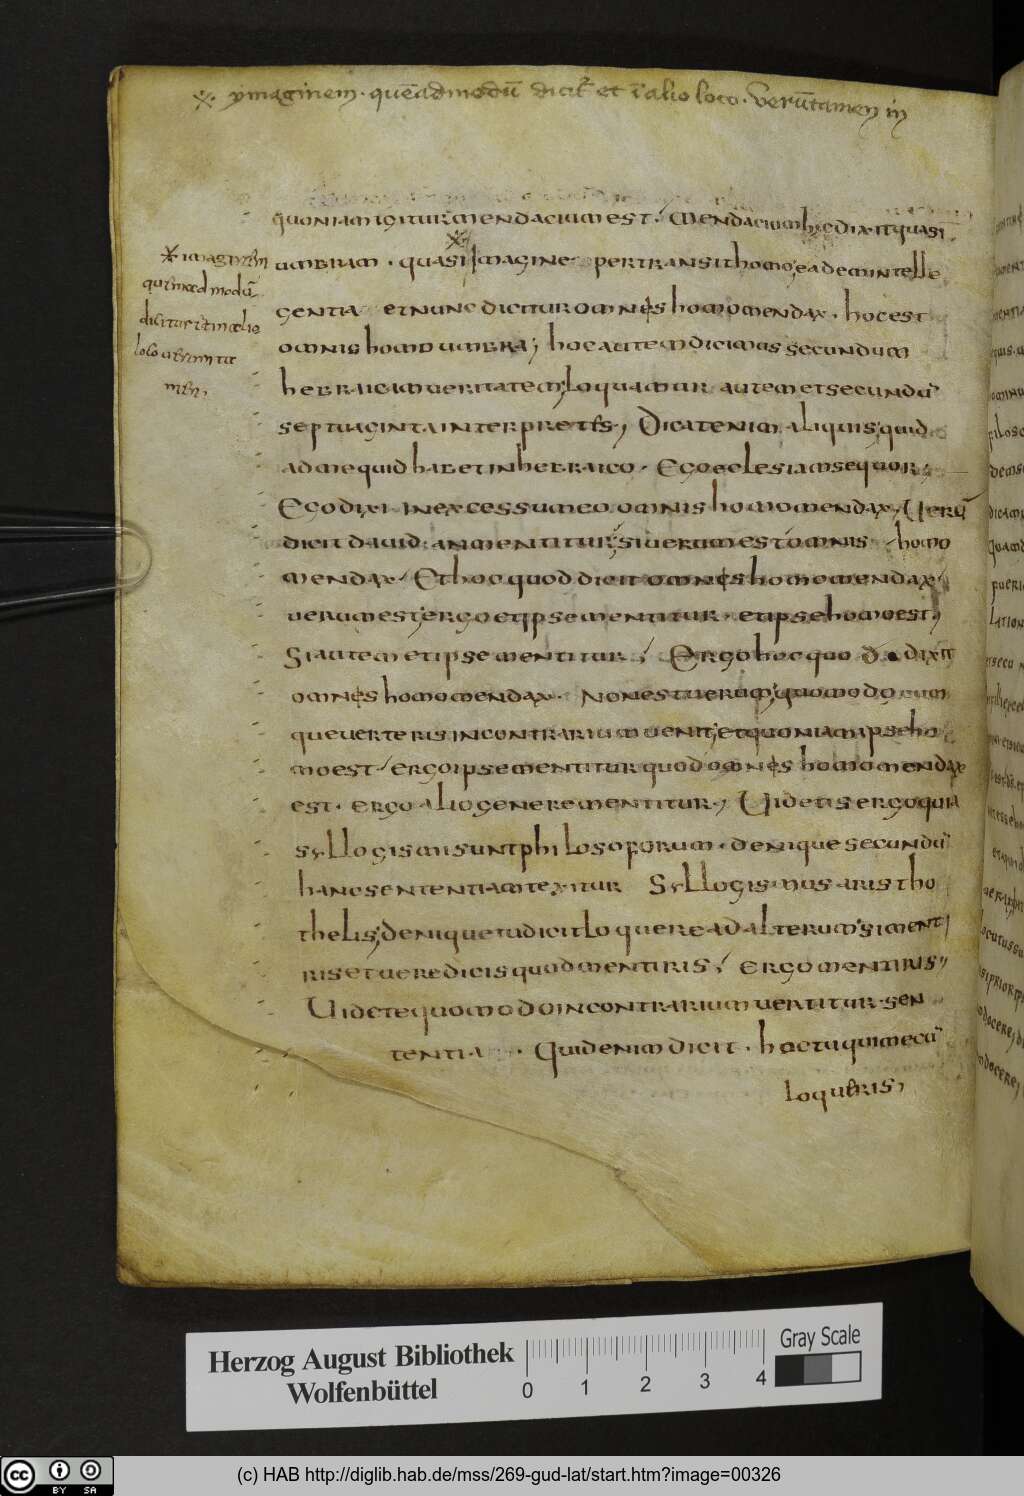 ※ ymaginem · quēadmodū dicit᷑ et ī alio loco · Verūtamen in
quoniamigiturmendaciumest; Mendaciumhocdixitquasi
※ imaginem
umbram · quasiimagine pertransithomo; eademintelle
quemadmodū
gentia etnunc dicituromneshomomendax · hocest
dicitur et in alio
omnis homo umbra; hocautemdicimus secundum
loco verumta
hebraicamveritatem; loquamur autemetsecundū
men,
septuagintainterpretes; Dicatenim aliquis; quid
admequidhabetinhebraico · Egoeclesiamsequor;
Egodixi inexcessumeo omnis homomendax; Verū
dicit david anmentitur; siverumest omnis homo
mendax; Ethocquoddicitomneshomomendax;
verumest; ergoetipsementitur · etipsehomoest;
Siautemetipsementitur; Ergohocquod dixit
omneshomomendax · Nonestverum; quomodo cum
queverterisincontrariumvenit; etquoniamipseho
moest; ergoipsementiturquodomneshomomendax
est · ergo aliogenerementitur; Videtisergoquia
syllogismisuntphilosoforum · deniquesecundū
hancsententiamtexitur Syllogismus aristho
thelis; deniquetudicitloquereadalterum; simenti
risetveredicisquodmentiris; ergomentiris;
Videtequomodoincontrariumvertitur · sen
tentia · Quidenimdicit · hoctuquimecū
loqueris;
Herzog August Bibliothek
Wolfenbüttel
0 1 2 3 4
Gray Scale
cc BY SA
(c) HAB http://diglib.hab.de/mss/269-gud-lat/start.htm?image=00326